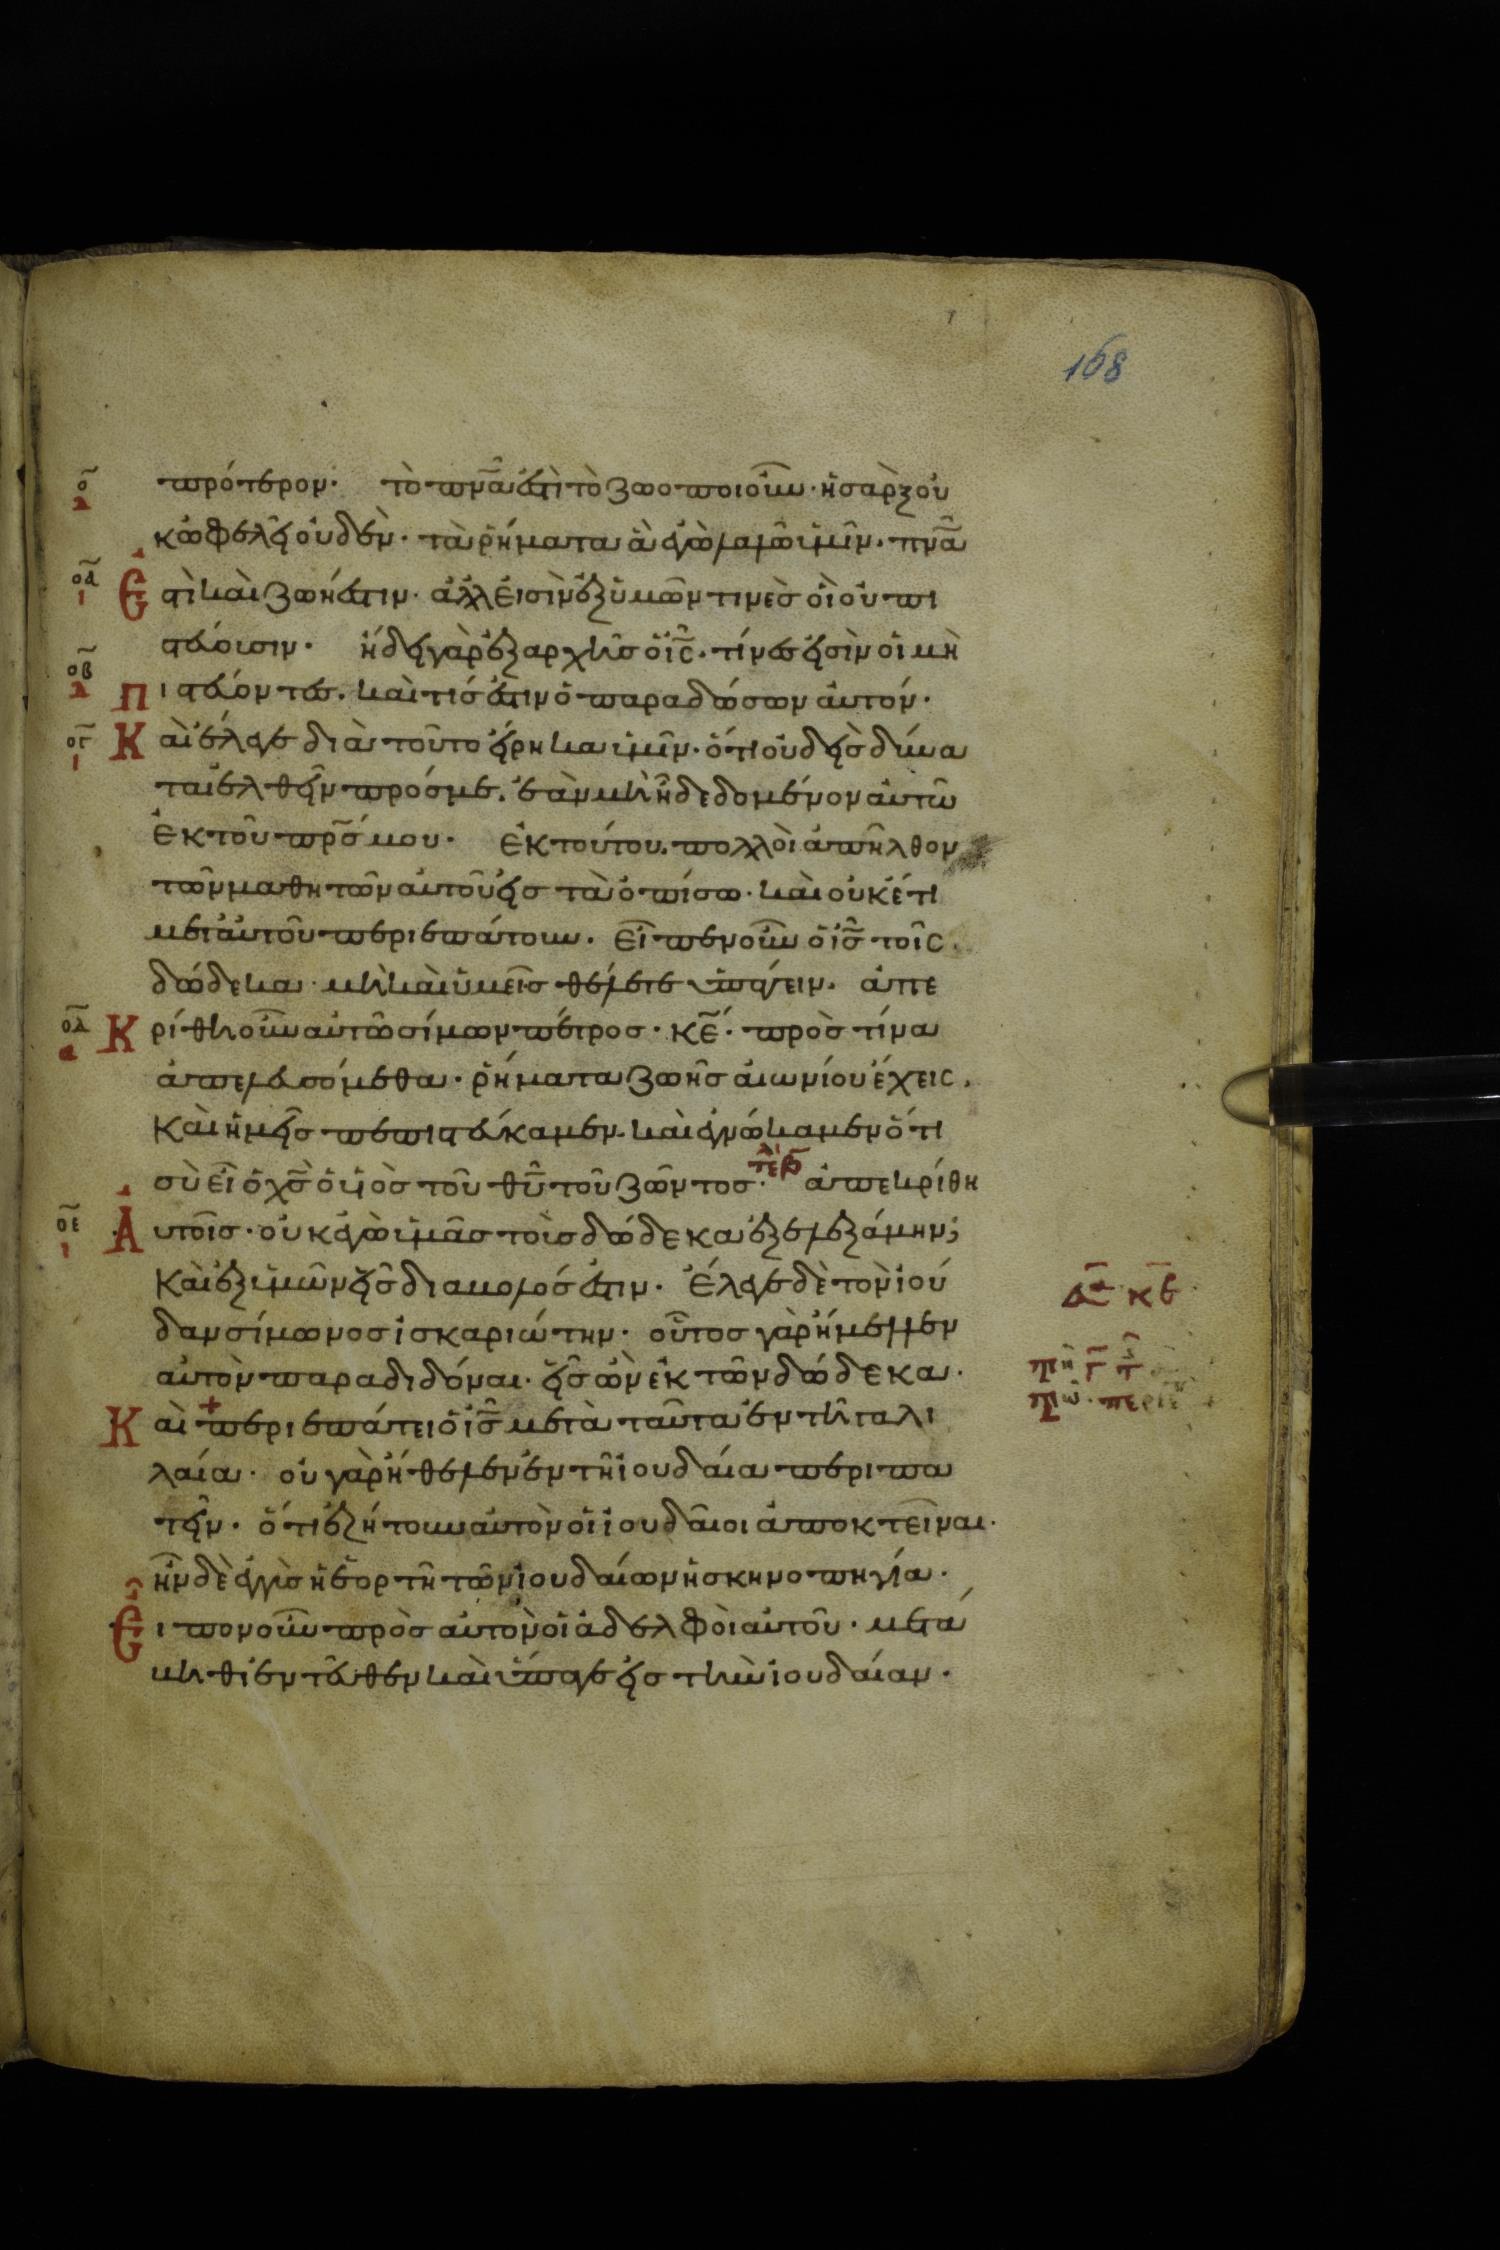 168
πρότερον· τὸ πν̅α̅ ἐστὶ τὸ ζωοποιοῦν· ἡ σὰρξ οὐ
κ ὠφελεῖ οὐδέν· τὰ ῥήματα ἃ ἐγὼ λαλῶ ὑμῖν· πν̅α̅
Ἐστὶ καὶ ζωή ἐστιν· ἀλλ' εἰσὶν ἐξ ὑμῶν τινὲς οἳ οὐ πι
στεύουσιν· ἤδει γὰρ ἐξ αρχῆς ὁ ι̅ς̅· τίνες εἰσὶν οἱ μὴ
Πιστεύοντες. καὶ τίς ἐστιν ὁ παραδώσων αὐτόν·
Καὶ ἔλεγε διὰ τοῦτο εἴρηκα ὑμῖν· ὅτι οὐδεὶς δύνα
ται ἐλθεῖν πρός με. ἐὰν μὴ ἦ δεδομένον αὐτῶ
ἐκ τοῦ πρ̅ς̅ μου· ἐκ τούτου. πολλοὶ ἀπῆλθον
τῶν μαθητῶν αὐτοῦ εἰς τὰ ὀπίσω· καὶ οὐκέτι
μετ' αὐτοῦ περιεπάτουν. εἶπεν οὖν ὁ ι̅ς̅ τοῖς
δώδεκα· μὴ καὶ ὑμεῖς θέλετε ὑπάγειν. ἀπε
Κρίθη οὖν αὐτῶ σίμων πέτρος· κ̅ε̅· πρὸς τίνα
ἀπελευσόμεθα· ῥήματα ζωῆς αἰωνίου ἔχεις.
καὶ ἡμεῖς πεπιστεύκαμεν. καὶ ἐγνώκαμεν ὅτι
σὺ εἶ ὁ χ̅ς̅ ὁ υἱὸς τοῦ θ̅υ̅ τοῦ ζῶντος· ἀπεκρίθη
Αὐτοῖς· οὐκ ἐγὼ ὑμᾶς τοὺς δώδεκα ἐξελεξάμην;
καὶ ἐξ ὑμῶν εἷς διάβολός ἐστιν. ἔλεγε δὲ τὸν ἰού
δαν σίμωνος ἰσκαριώτην· οὗτος γὰρ ἤμελλεν
αὐτὸν παραδιδόναι. εἷς ὢν ἐκ τῶν δώδεκα·
Καὶ περιεπάτει ὁ ι̅ς̅ μετὰ ταῦτα ἐν τῆ γαλι
λαία· οὐ γὰρ ἤθελεν ἐν τῆ ἰουδαία περιπα
τεῖν· ὅτι ἐζήτουν αὐτὸν οἱ ἰουδαῖοι ἀποκτεῖναι·
ἦν δὲ ἐγγὺς ἡ ἑορτὴ τῶν ἰουδαίων ἡ σκηνοπηγία·
Εἶπον οὖν πρὸς αὐτὸν οἱ ἀδελφοὶ αὐτοῦ· μετά
βηθι ἐντεῦθεν καὶ ὕπαγε εἰς τὴν ἰουδαίαν·
ο̅
ο̅α̅
ι
ο̅β̅
ο̅γ̅
ι
ο̅δ̅
α
ο̅ε̅
ι
κ̅β̅